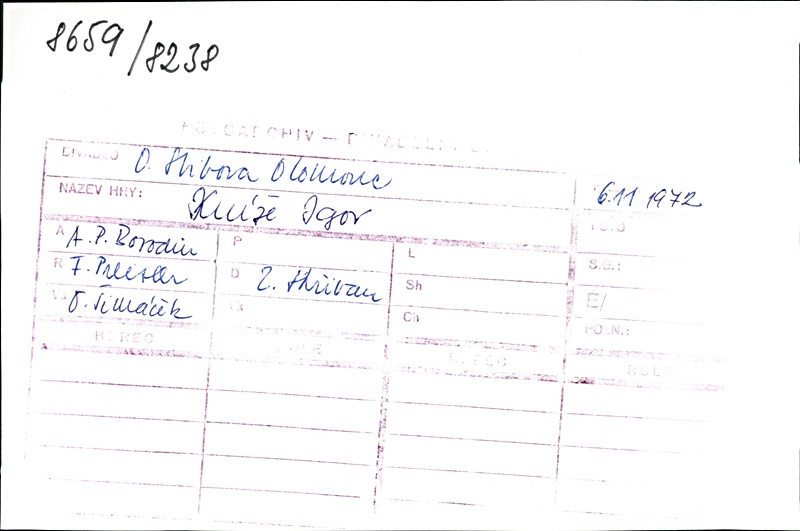 8659/8238
FOTOARCHIV —
DIVADLO O. Stibora Olomouc 6.11 1972
NÁZEV HRY: Kníže Igor
A A. P. Borodin P L S.S.:
R F. Preisler D Z. Hřiban Sh E/
Vs O. Šimáček Vk Ch PO.N.:
HEREC ROLE HEREC ROLE